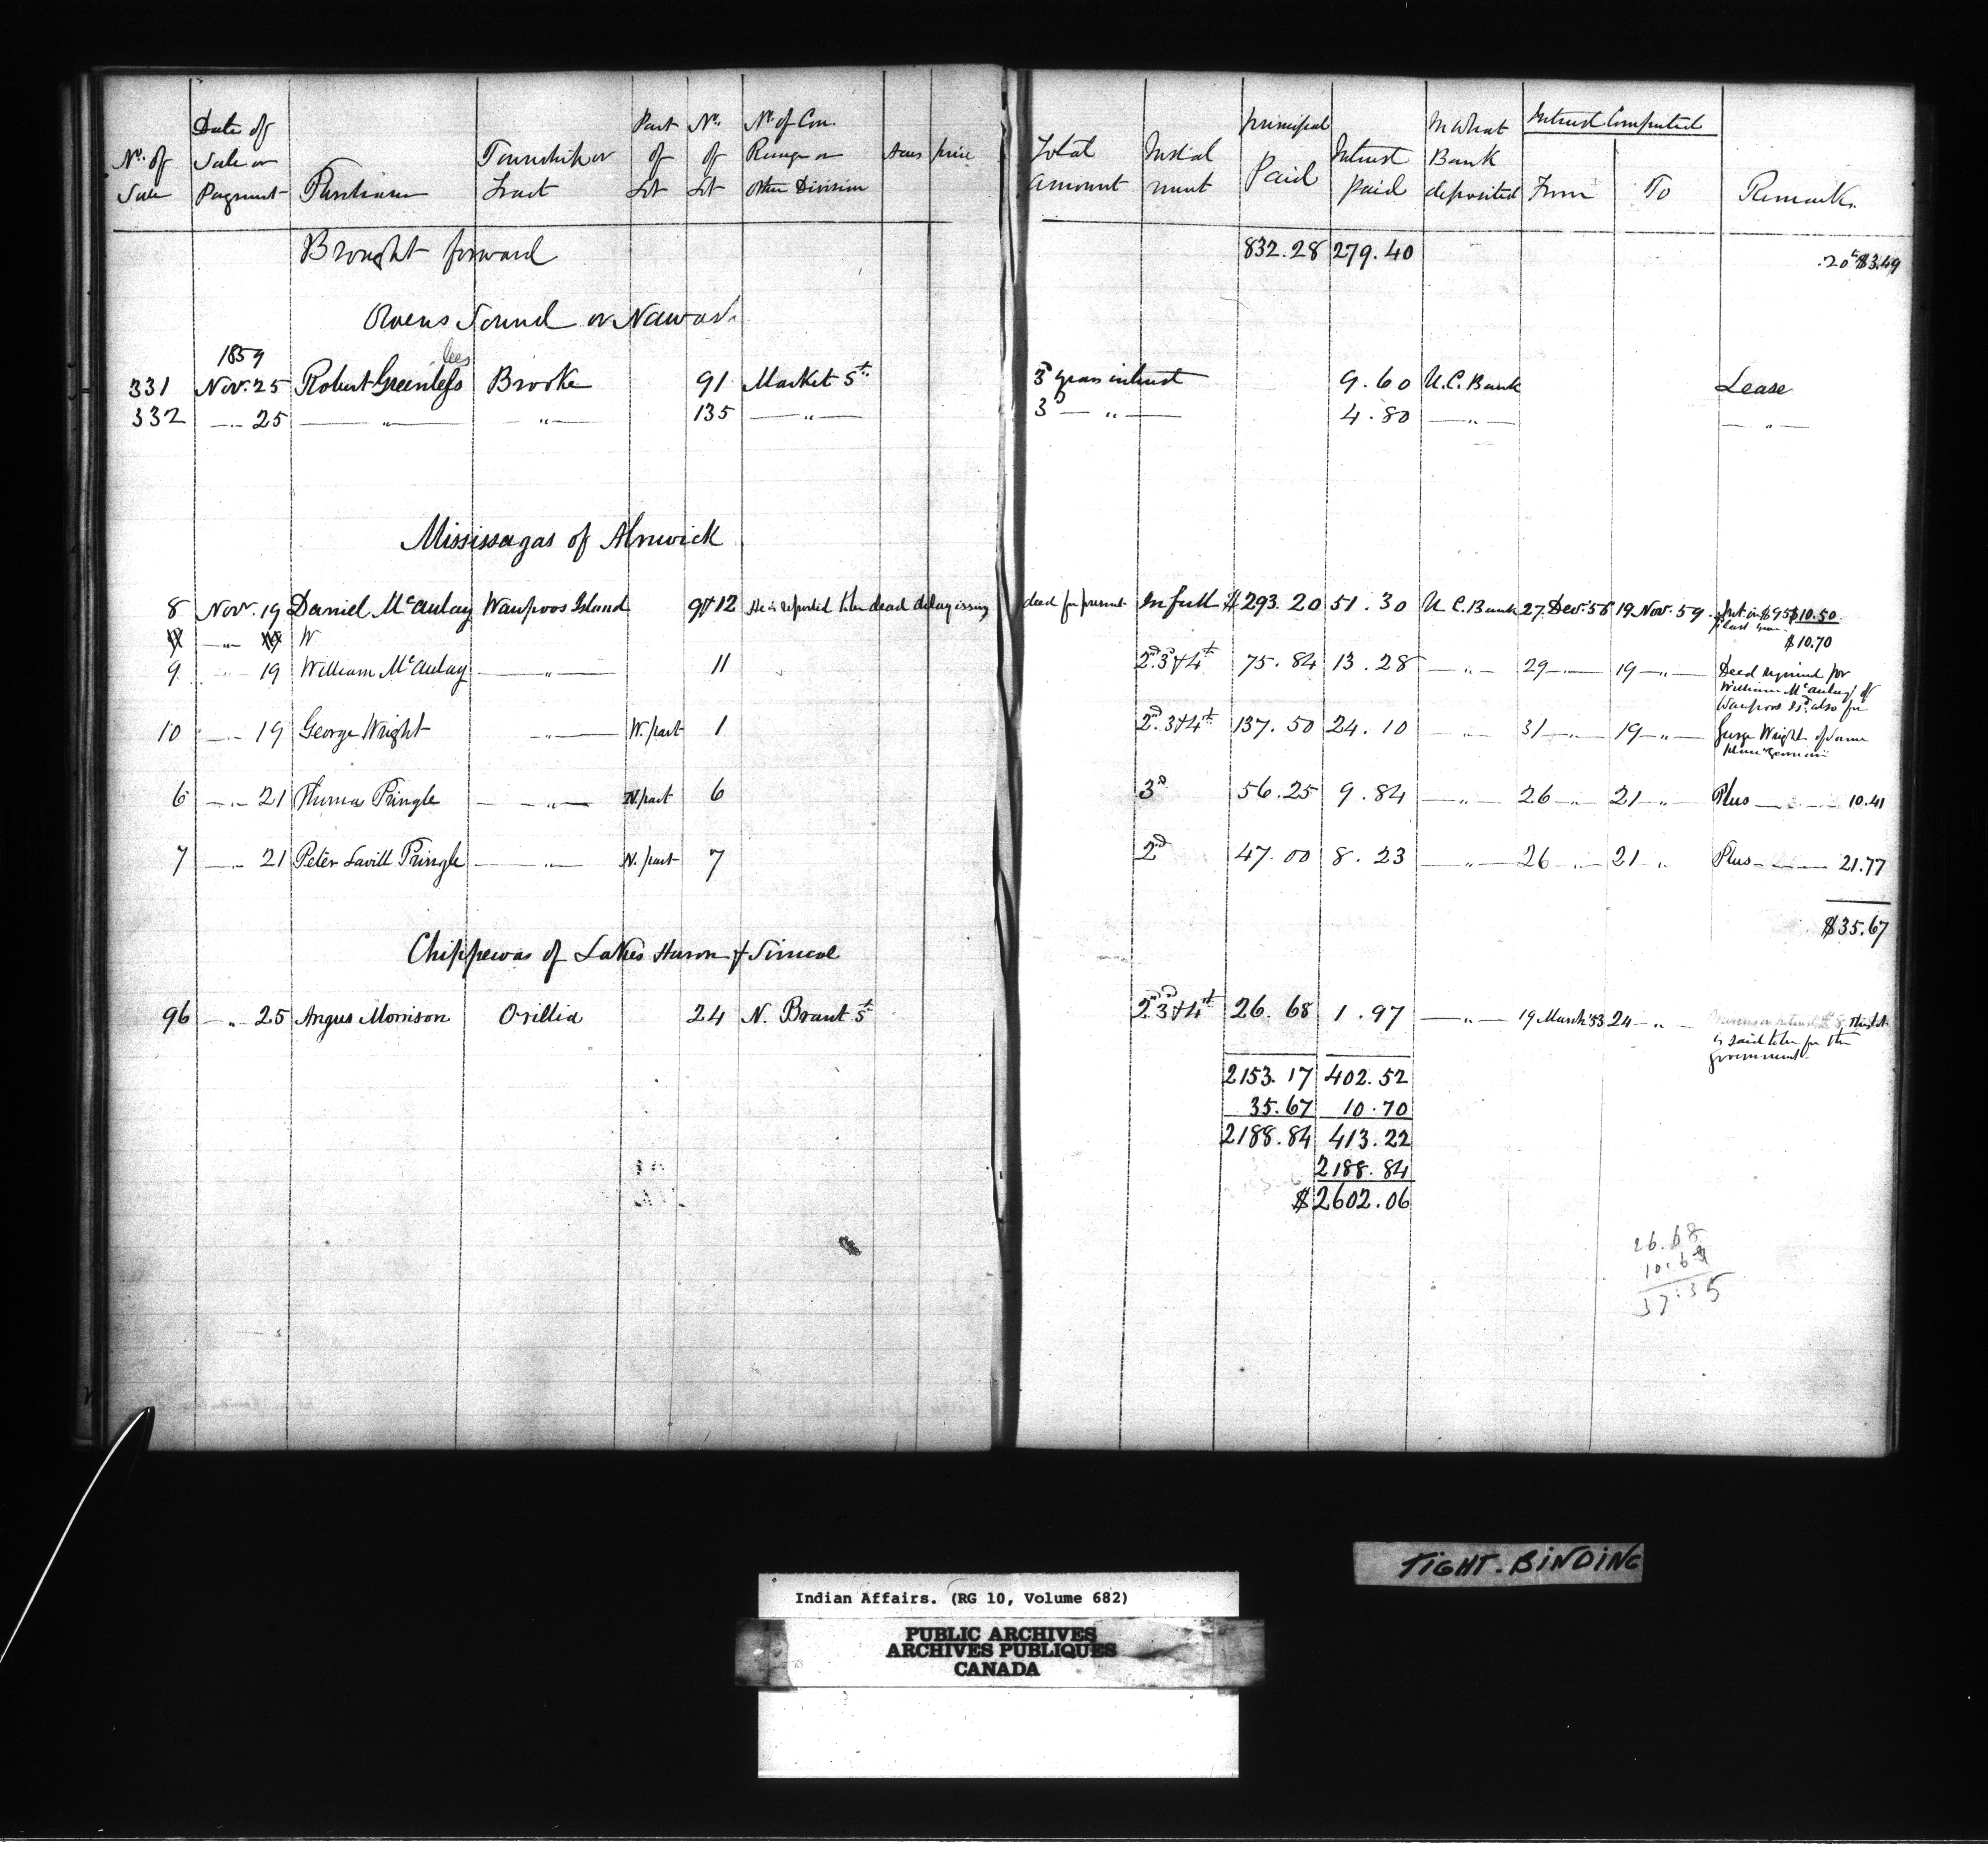 No. of Sale | Date of Sale or Payment | Purchaser | Township or Tract | Part of Lot | No. of Lot | No. of Con. Range or other Division | Acres | price | Total amount | Instalment | principal Paid | Interest paid | In what Bank deposited | Interest Computed From | To | Remarks
Brought forward 832.28 279.40 .20 $3.49
Owens Sound or Nawash
1859
lees
331 Nov. 25 Robert Greenlefs Brooke 91 Market St. 3d years interest 9.60 U.C. Bank Lease
332 — " — 25 — " — — " — 135 — " — 3d — " — 4.80 — " — — " —
Mississagas of Alnwick
8 Nov. 19 Daniel McAulay Waupoos Island 9 & 12 He is reported to be dead delay issuing deed for present In full $293.20 51.30 U.C. Bank 27 Dec. 56 19 Nov. 59 Int. on $95 $10.50
$10.70
9 — " — 19 William McAulay — " — 11 2d. 3d & 4th 75.84 13.28 — " — 29 — " — 19 — " — Deed required for
William McAulay of
Waupoos Isd. also for
10 — " — 19 George Wright — " — W. part 1 2nd. 3 & 4th 137.50 24.10 — " — 31 — " — 19 — " — George Wright of same
6 — " — 21 Thomas Pringle — " — N. part 6 3d 56.25 9.84 — " — 26 — " — 21 — " — Plus — " — 10.41
7 — " — 21 Peter Savill Pringle — " — N. part 7 2nd 47.00 8.23 — " — 26 — " — 21 " Plus — " — 21.77
$35.67
Chippewas of Lakes Huron & Simcoe
96 — " — 25 Angus Morrison Orillia 24 N. Brant St 2nd 3d & 4th 26.68 1.97 — " — 19 March '53 24 — " — This lot
is said to be for the
government.
2153.17 402.52
35.67 10.70
2188.84 413.22
2188.84
$2602.06
26.68
10.67
37.35
TIGHT. BINDING
Indian Affairs. (RG 10, Volume 682)
PUBLIC ARCHIVES
ARCHIVES PUBLIQUES
CANADA